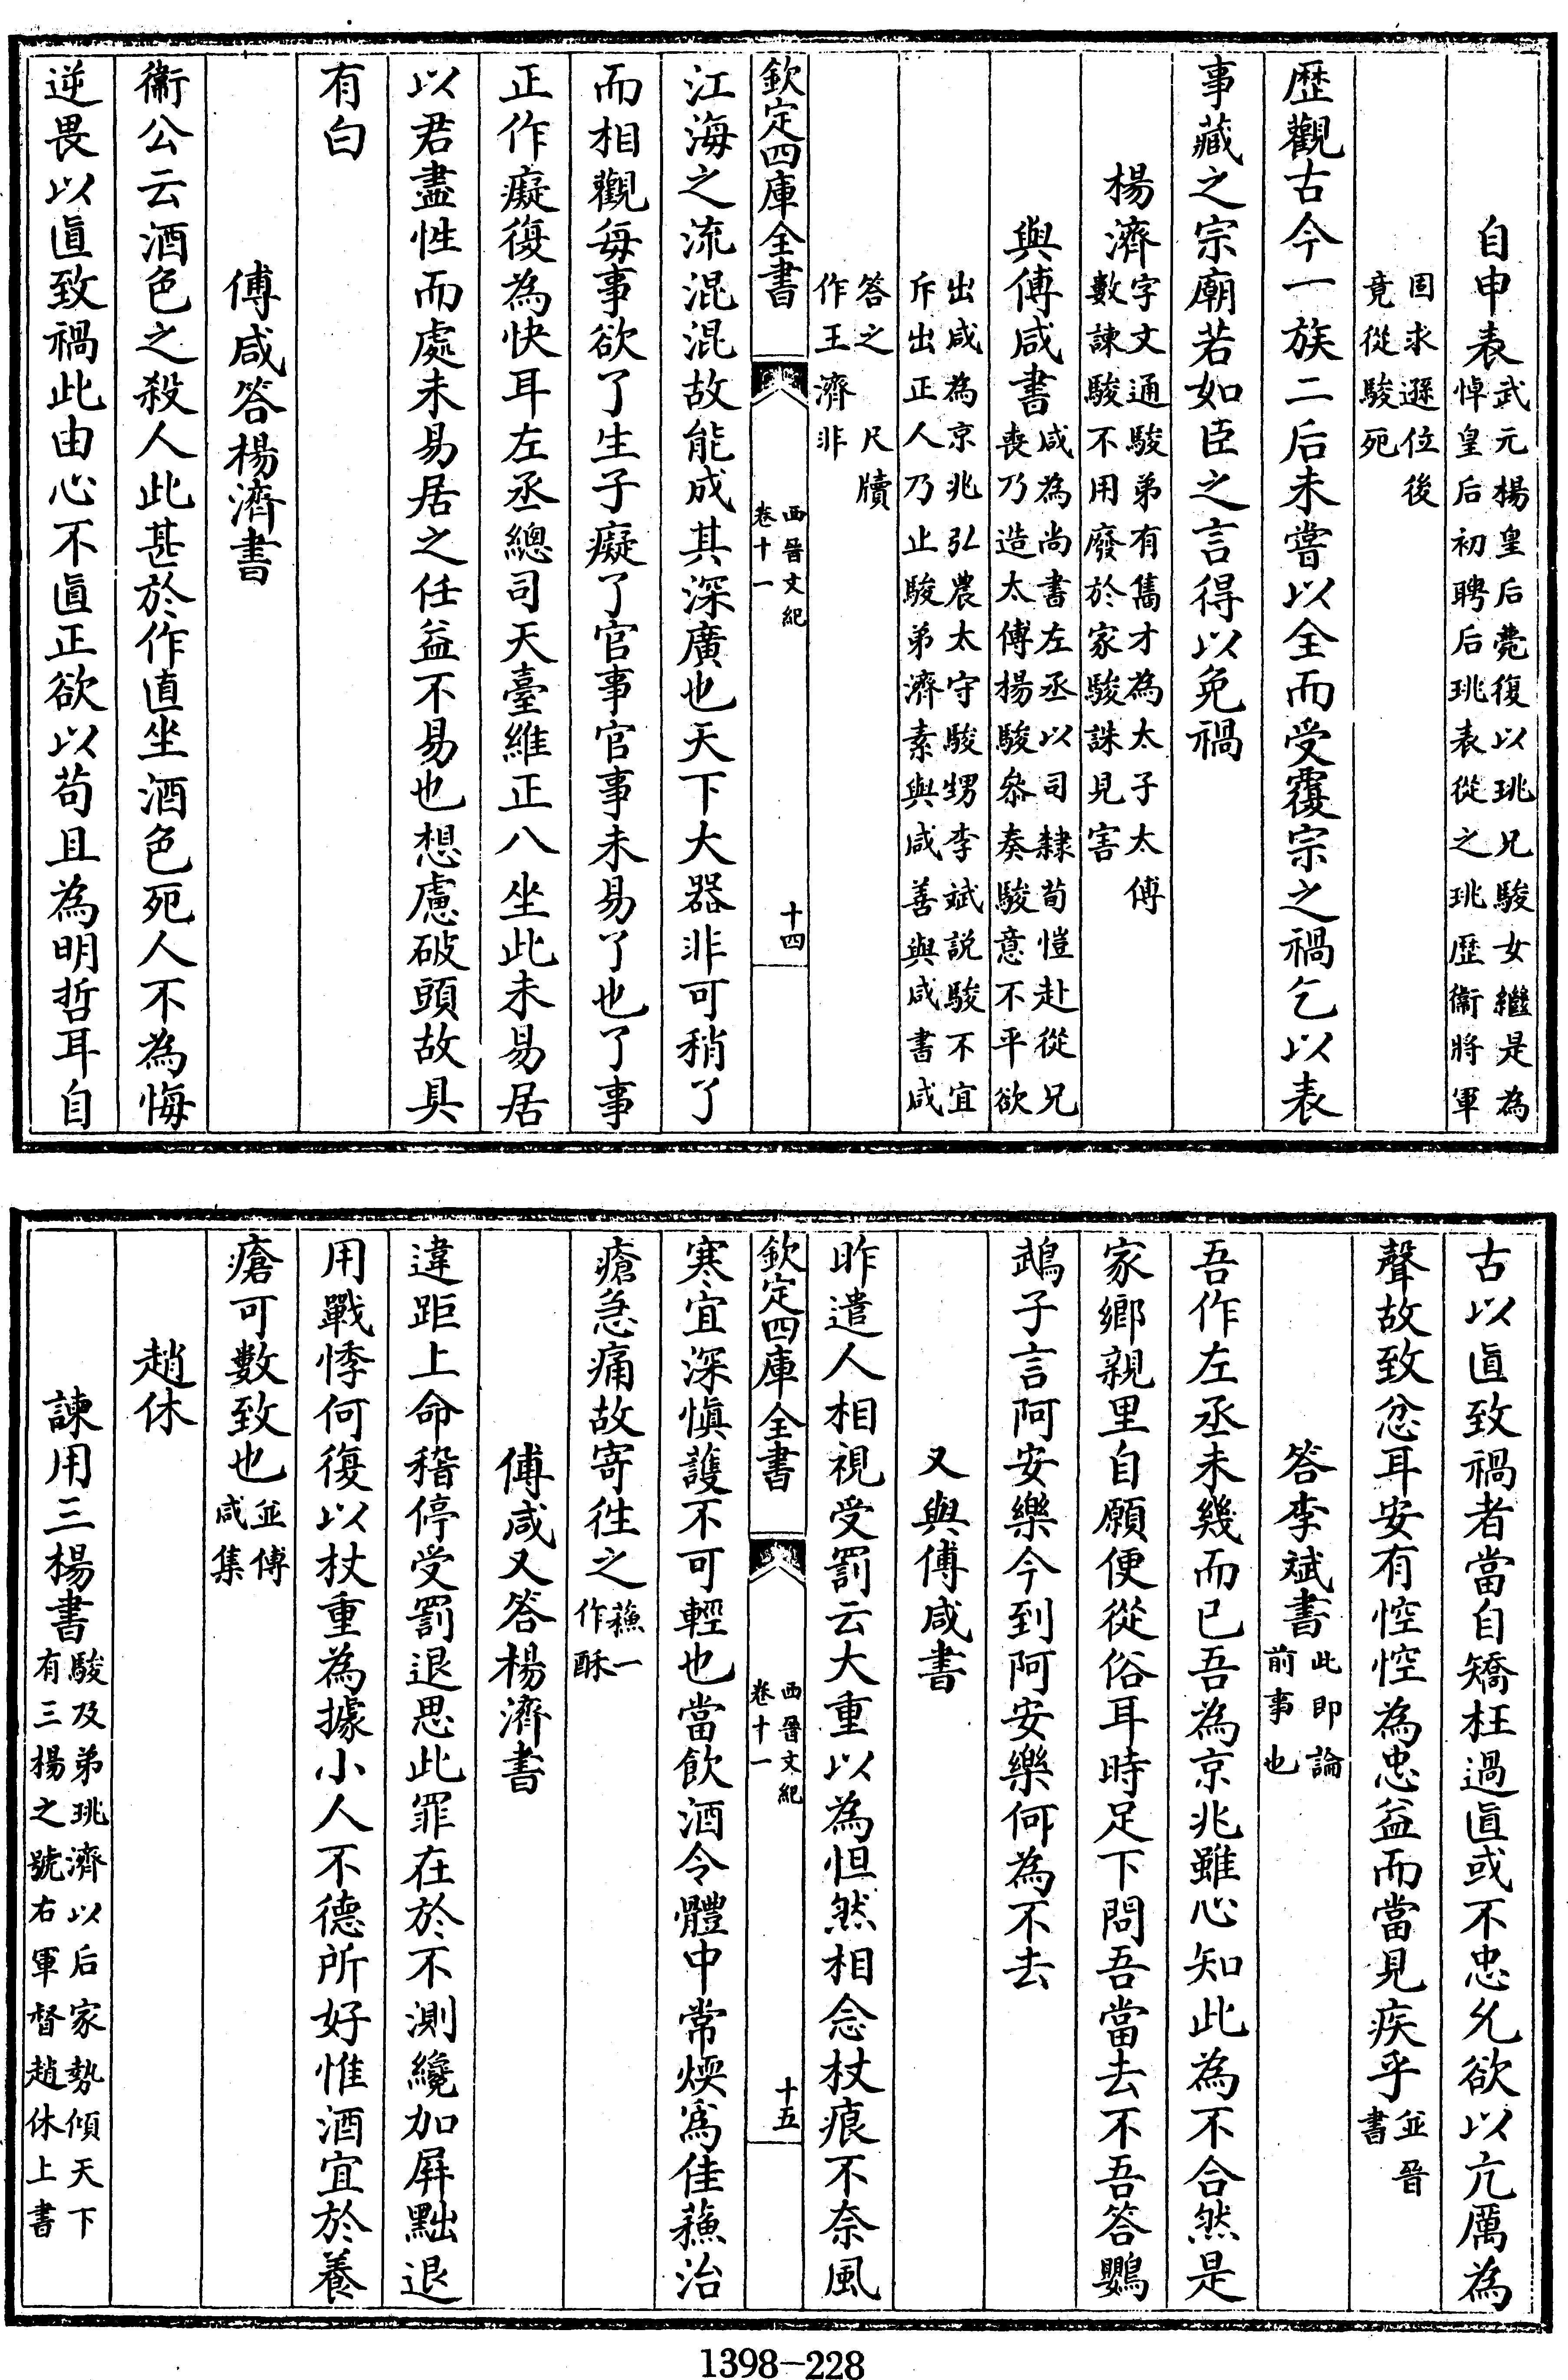 自申表武元楊皇后薨復以珧兄駿女繼是為悼皇后初聘后珧表從之珧歷衞將軍
固求遜位後竟從駿死
歴觀古今一族二后未嘗以全而受覆宗之禍乞以表
事藏之宗廟若如臣之言得以免禍
楊濟字文通駿弟有雋才為太子太傅數諫駿不用廢於家駿誅見害
與傅咸書咸為尚書左丞以司隸荀愷赴從兄喪乃造太傅楊駿叅奏駿意不平欲
出咸為京兆弘農太守駿甥李斌説駿不宜斥出正人乃止駿弟濟素與咸善與咸書咸
答之 尺牘作王濟非
欽定四庫全書 西晉文紀卷十一 十四
江海之流混混故能成其深廣也天下大器非可稍了
而相觀每事欲了生子癡了官事官事未易了也了事
正作癡復為快耳左丞總司天臺維正八坐此未易居
以君盡性而處未易居之任益不易也想慮破頭故具
有白
傅咸答楊濟書
衞公云酒色之殺人此甚於作直坐酒色死人不為悔
逆畏以直致禍此由心不直正欲以苟且為明哲耳自
古以直致禍者當自矯枉過直或不忠允欲以亢厲為
聲故致忿耳安有悾悾為忠益而當見疾乎並晉書
答李斌書此即論前事也
吾作左丞未幾而已吾為京兆雖心知此為不合然是
家鄉親里自願便從俗耳時足下問吾當去不吾答鸚
鵡子言阿安樂今到阿安樂何為不去
又與傅咸書
昨遣人相視受罰云大重以為怛然相念杖痕不奈風
欽定四庫全書 西晉文紀卷十一 十五
寒宜深慎護不可輕也當飲酒令體中常煖為佳蘓治
瘡急痛故寄往之蘓一作酥
傅咸又答楊濟書
違距上命稽停受罰退思此罪在於不測纔加屏黜退
用戰悸何復以杖重為據小人不德所好惟酒宜於養
瘡可數致也並傅咸集
趙休
諫用三楊書駿及弟珧濟以后家勢傾天下有三楊之號右軍督趙休上書
1398-228